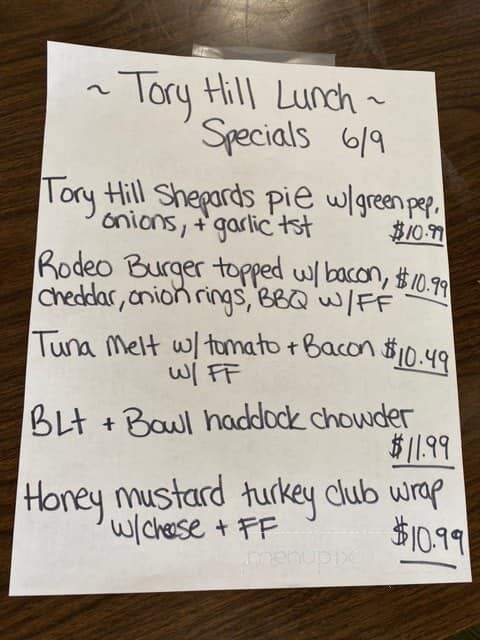 ~ Tory Hill Lunch ~
Specials 6/9
Tory Hill Shepards pie w/green pep,
onions, + garlic tst $10.99
Rodeo Burger topped w/bacon, $10.99
cheddar, onion rings, BBQ w/FF
Tuna Melt w/ tomato + Bacon $10.49
w/ FF
BLt + Bowl haddock chowder
$11.99
Honey mustard turkey club wrap
w/cheese + FF $10.99
menupix